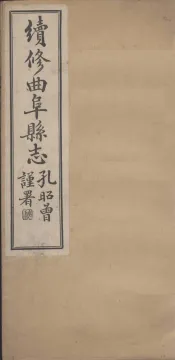 續修曲阜縣志
孔昭曾
謹署